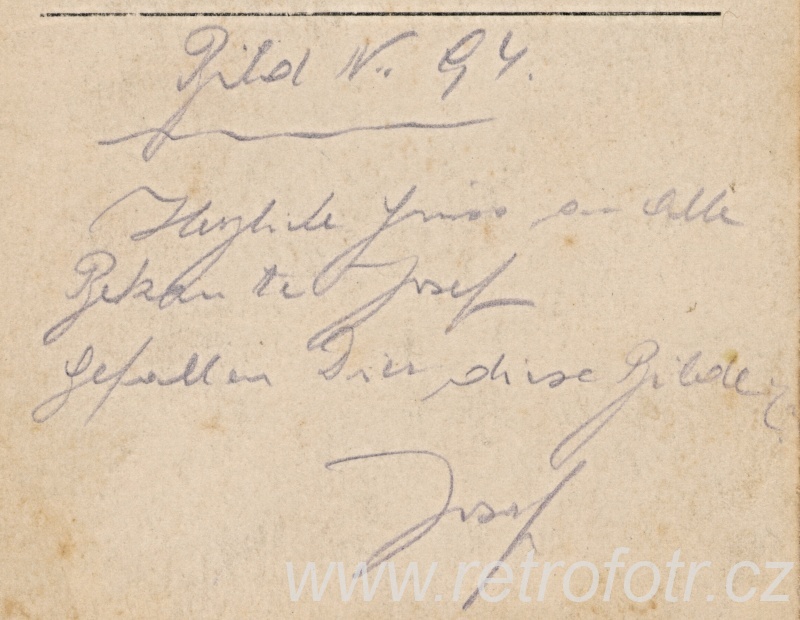 Bild N. 94.
Herzliche Gruss an Alle
Bekannte Josef
Gefallen Dir diese Bilder?
Josef
www.retrofotr.cz